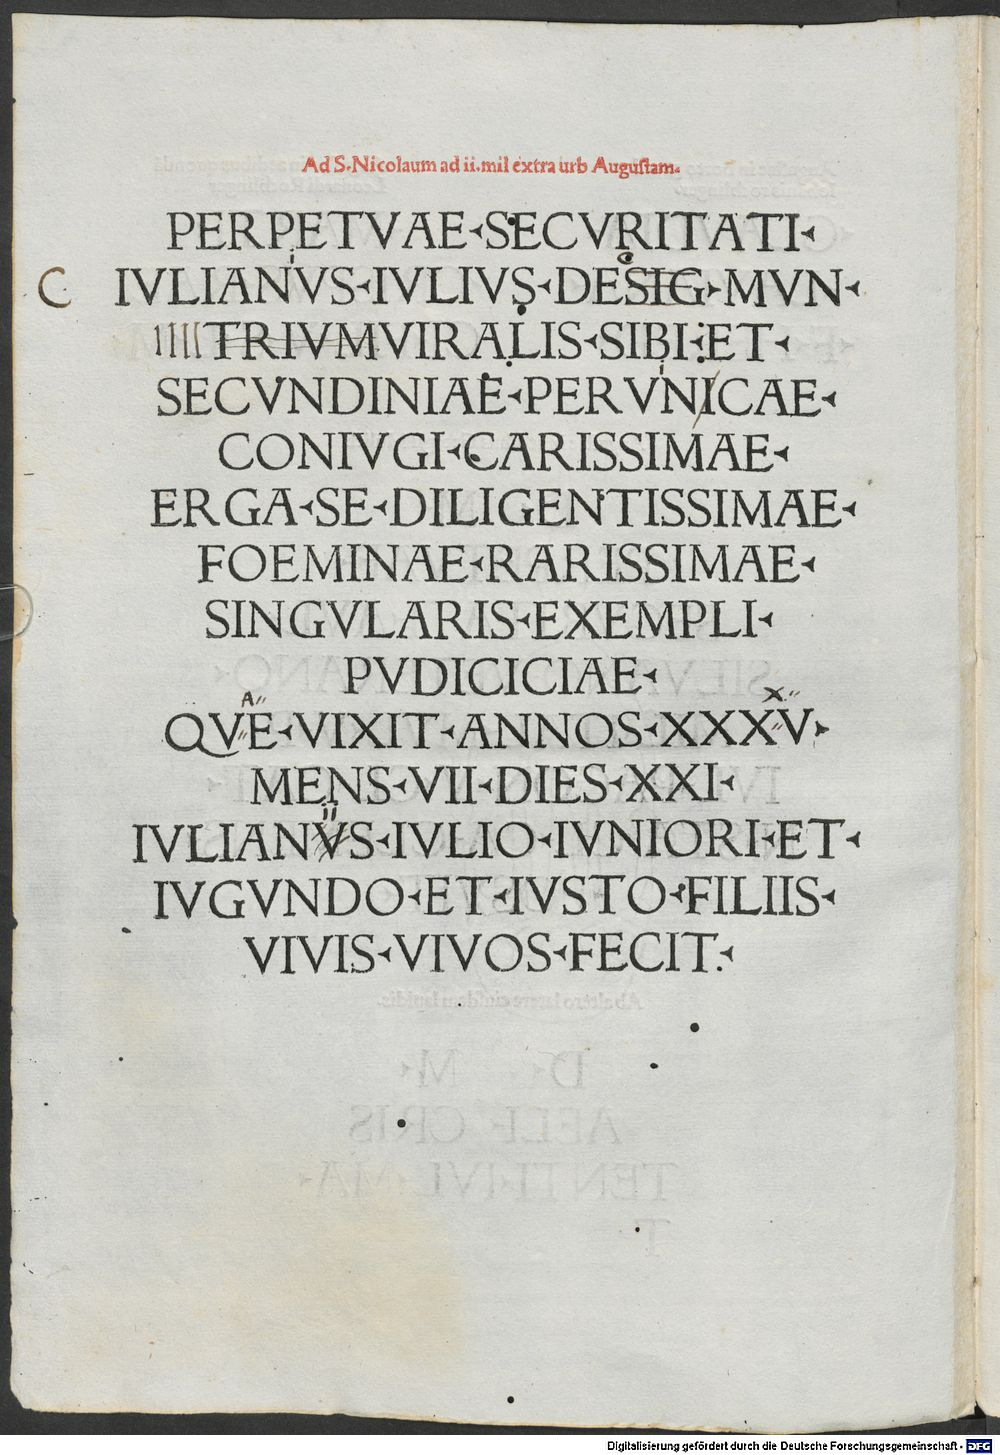 Ad S. Nicolaum ad ii. mil extra urb Augustam.
PERPETVAE·SECVRITATI·
C IVLIANVS·IVLIVS·DESIG·MVN·
IIII TRIVMVIRALIS·SIBI·ET·
SECVNDINIAE·PERVNICAE·
CONIVGI·CARISSIMAE·
ERGA·SE·DILIGENTISSIMAE·
FOEMINAE·RARISSIMAE·
SINGVLARIS·EXEMPLI·
PVDICICIAE·
QVE·VIXIT·ANNOS·XXXV·
MENS·VII·DIES·XXI·
IVLIANVS·IVLIO·IVNIORI·ET·
IVGVNDO·ET·IVSTO·FILIIS·
VIVIS·VIVOS·FECIT·
Digitalisierung gefördert durch die Deutsche Forschungsgemeinschaft - DFG